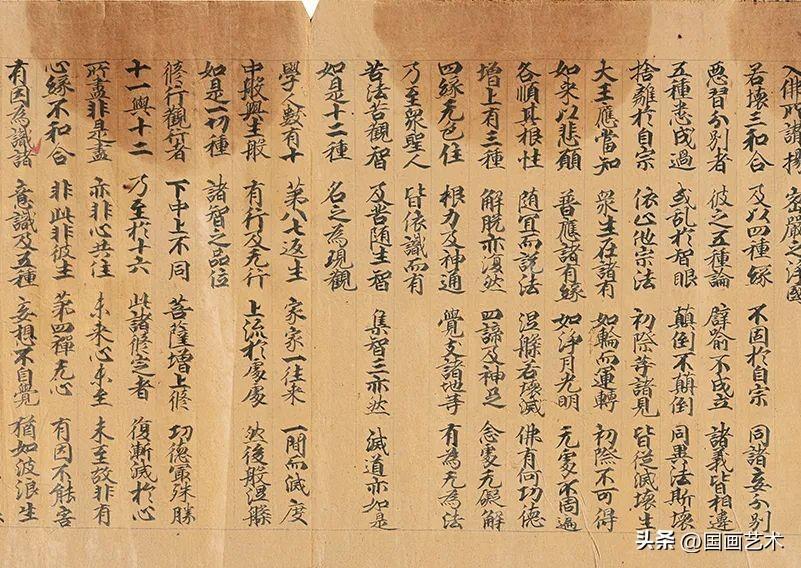 入佛所讚揚 密嚴之淨國
若壞三和合 及以四種緣 不因於自宗 同諸妄分別
惡習分別者 彼之五種論 譬喻不成立 諸義皆相違
五種悉成過 或亂於智眼 顛倒不顛倒 同異法斯壞
捨離於自宗 依止他宗法 初際等諸見 皆從滅壞生
大王應當知 眾生在諸有 如輪而運轉 初際不可得
如來以悲願 普應諸有緣 如淨月光明 无處不周遍
各順其根性 随宜而說法 涅槃若壞滅 佛有何功德
增上有三種 解脫亦復然 四諦及神足 念處无礙解
四緣无色住 根力及神通 覺支諸地等 有為无為法
乃至眾聖人 皆依識而有
苦法苦觀智 及苦随生智 集智三亦然 滅道亦如是
如是十二種 名之為現觀
學人數有十 苐八七返生 家家一往來 一間而滅度
中般與生般 有行及无行 上流於處處 然後般涅槃
如是一切種 諸智之品位
修行觀行者 下中上不同 菩薩增上修 功德最殊勝
十一與十二 乃至於十六 此諸修定者 復漸滅於心
所盡非是盡 亦非心共住 未來心未至 未至故非有
心緣不和合 非此非彼生 苐四禪无心 有因不能害
有因為識諸 意識及五種 妄想不自覺 猶如波浪生
头条 @国画艺术